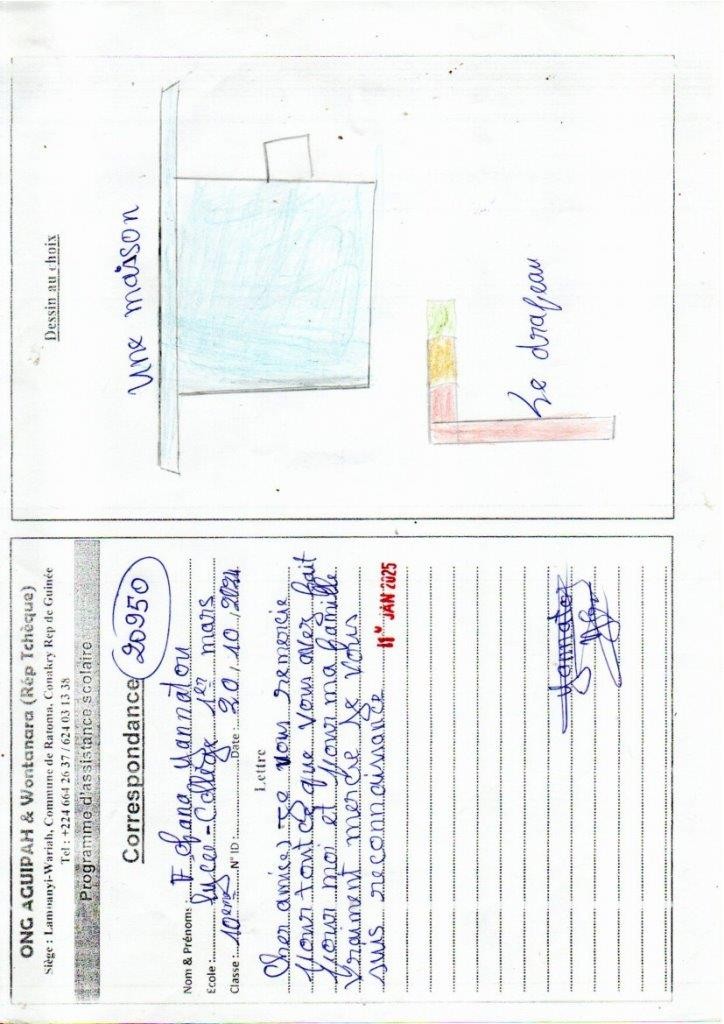 ONG AGUIPAH & Wontanara (Rép Tchèque)
Siège : Lambanyi-Wariah, Commune de Ratoma, Conakry Rep de Guinée
Tel : +224 664 26 37 / 624 03 13 38
Programme d'assistance scolaire
Correspondance 20950
Nom & Prénoms: Fofana Yannatou
Ecole : Lycée-Collège 1er mars
Classe : 10eme N° ID : Date : 20/10/2024
Lettre
Cher ami(e) Je vous remercie
pour tout ce que vous avez fait
pour moi et pour ma famille
Vraiment mercie Je vous
suis reconnaissance
JAN 2025
Yannatou
Dessin au choix
Une maison
Le drapeau